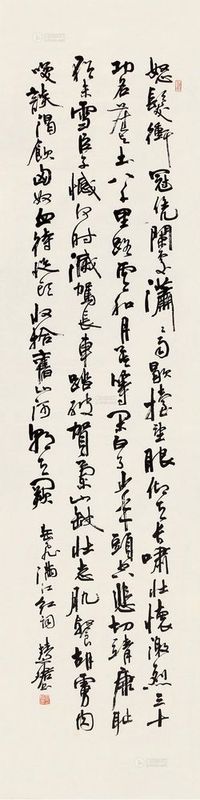 怒髮衝冠凭闌處瀟〻雨歇擡望眼仰天長嘯壯懷激烈三十
功名塵土八千里路雲和月莫等閑白了少年頭空悲切靖康恥
猶未雪臣子憾何時滅駕長車踏破賀蘭山缺壯志肌餐胡虜肉
笑談渴飲匈奴血待從頭收拾舊山河朝天闕 岳飛滿江紅詞